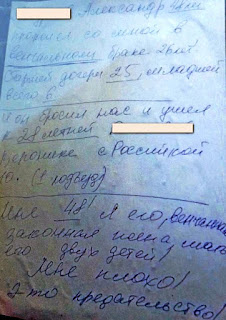 Александр
прожил со мной в
венчальном браке 29 лет
Старшей дочери 25, младшей
всего 8.
И он бросил нас и ушел
к 28 летней
Воронике с Российской
10. (1 подъезд)
Мне 48! Я его, венчанная
законная жена, мать
его двух детей!
Мне плохо!
Это предательство!